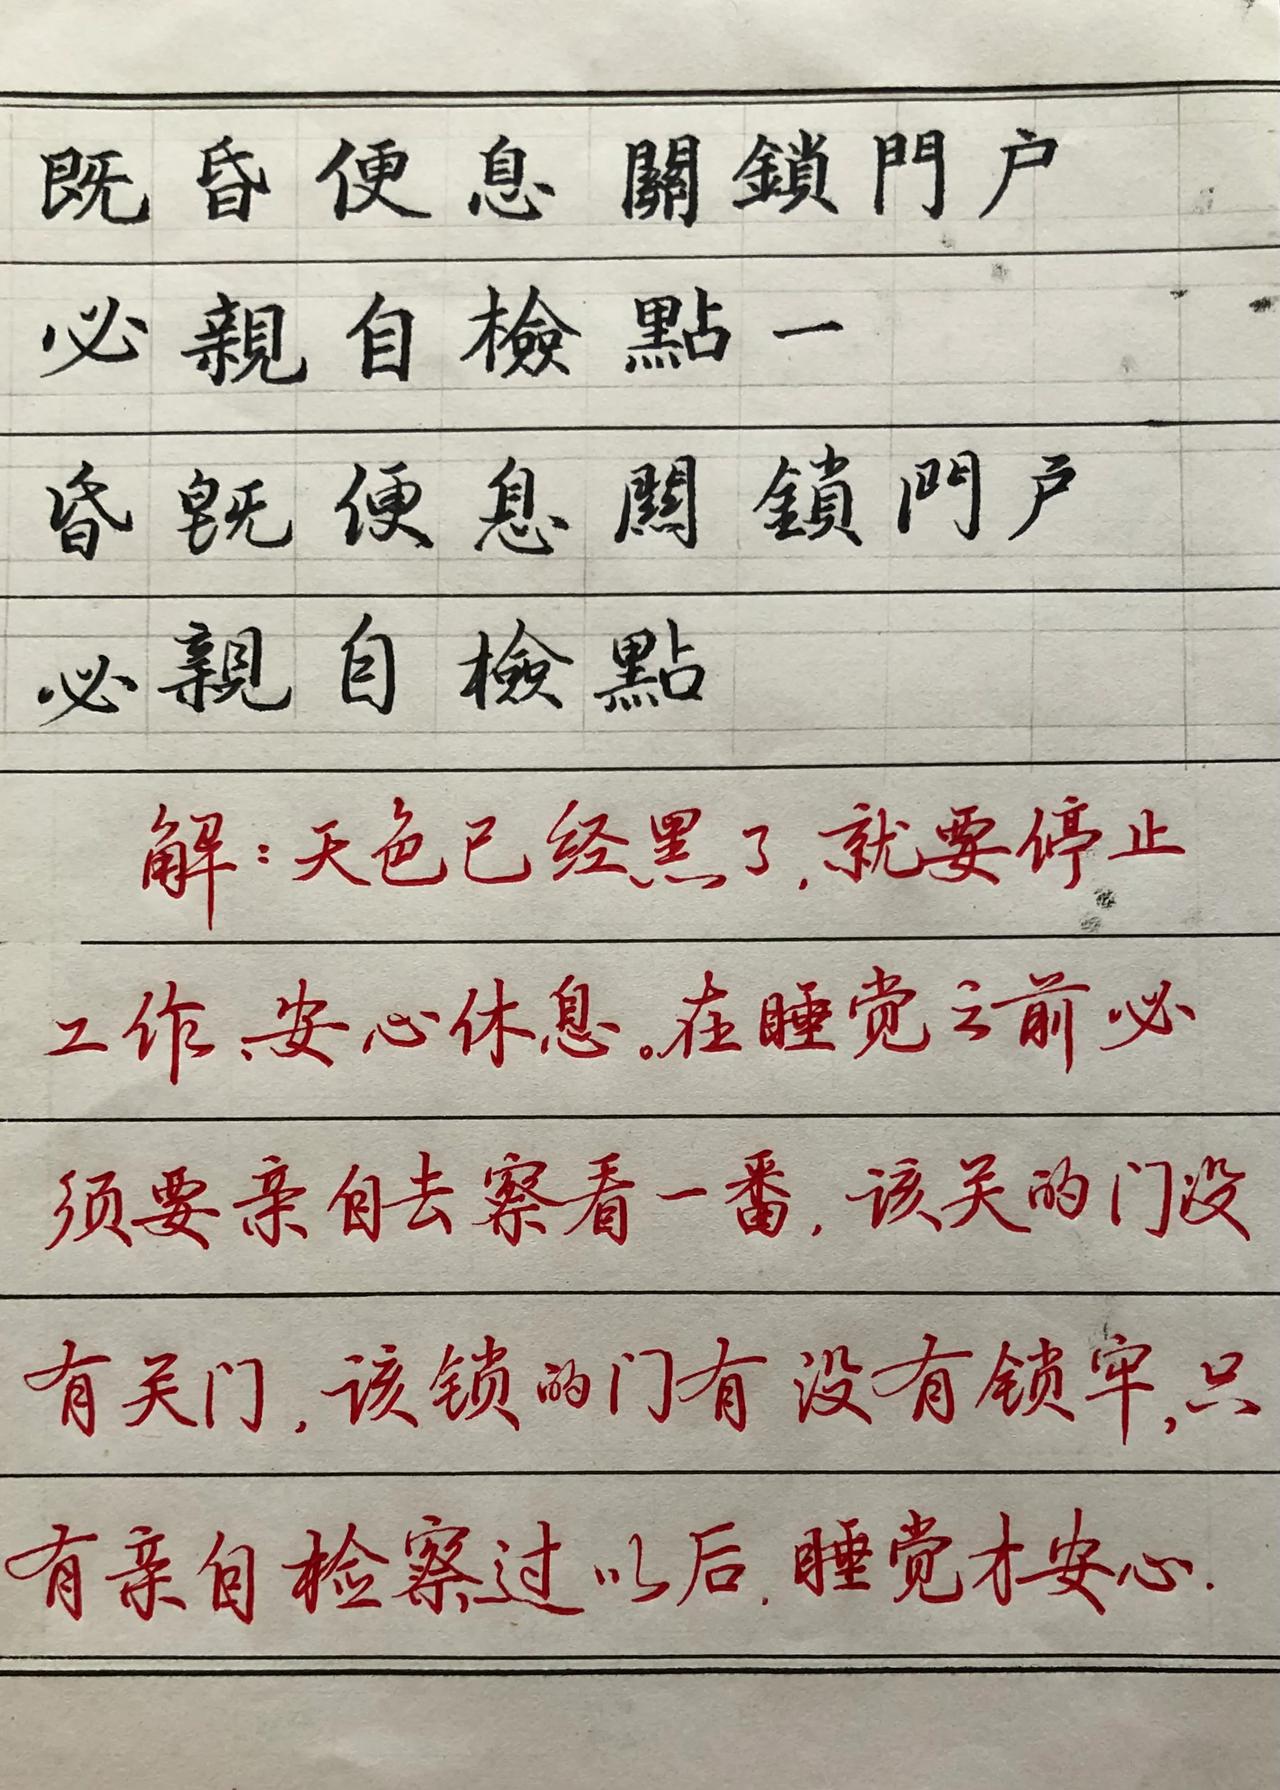 既昏便息關鎖門户
必親自檢點一
昏既便息關鎖門户
必親自檢點
解：天色已经黑了，就要停止
工作、安心休息。在睡觉之前必
须要亲自去察看一番，该关的门没
有关门，该锁的门有没有锁牢，只
有亲自检察过以后，睡觉才安心.